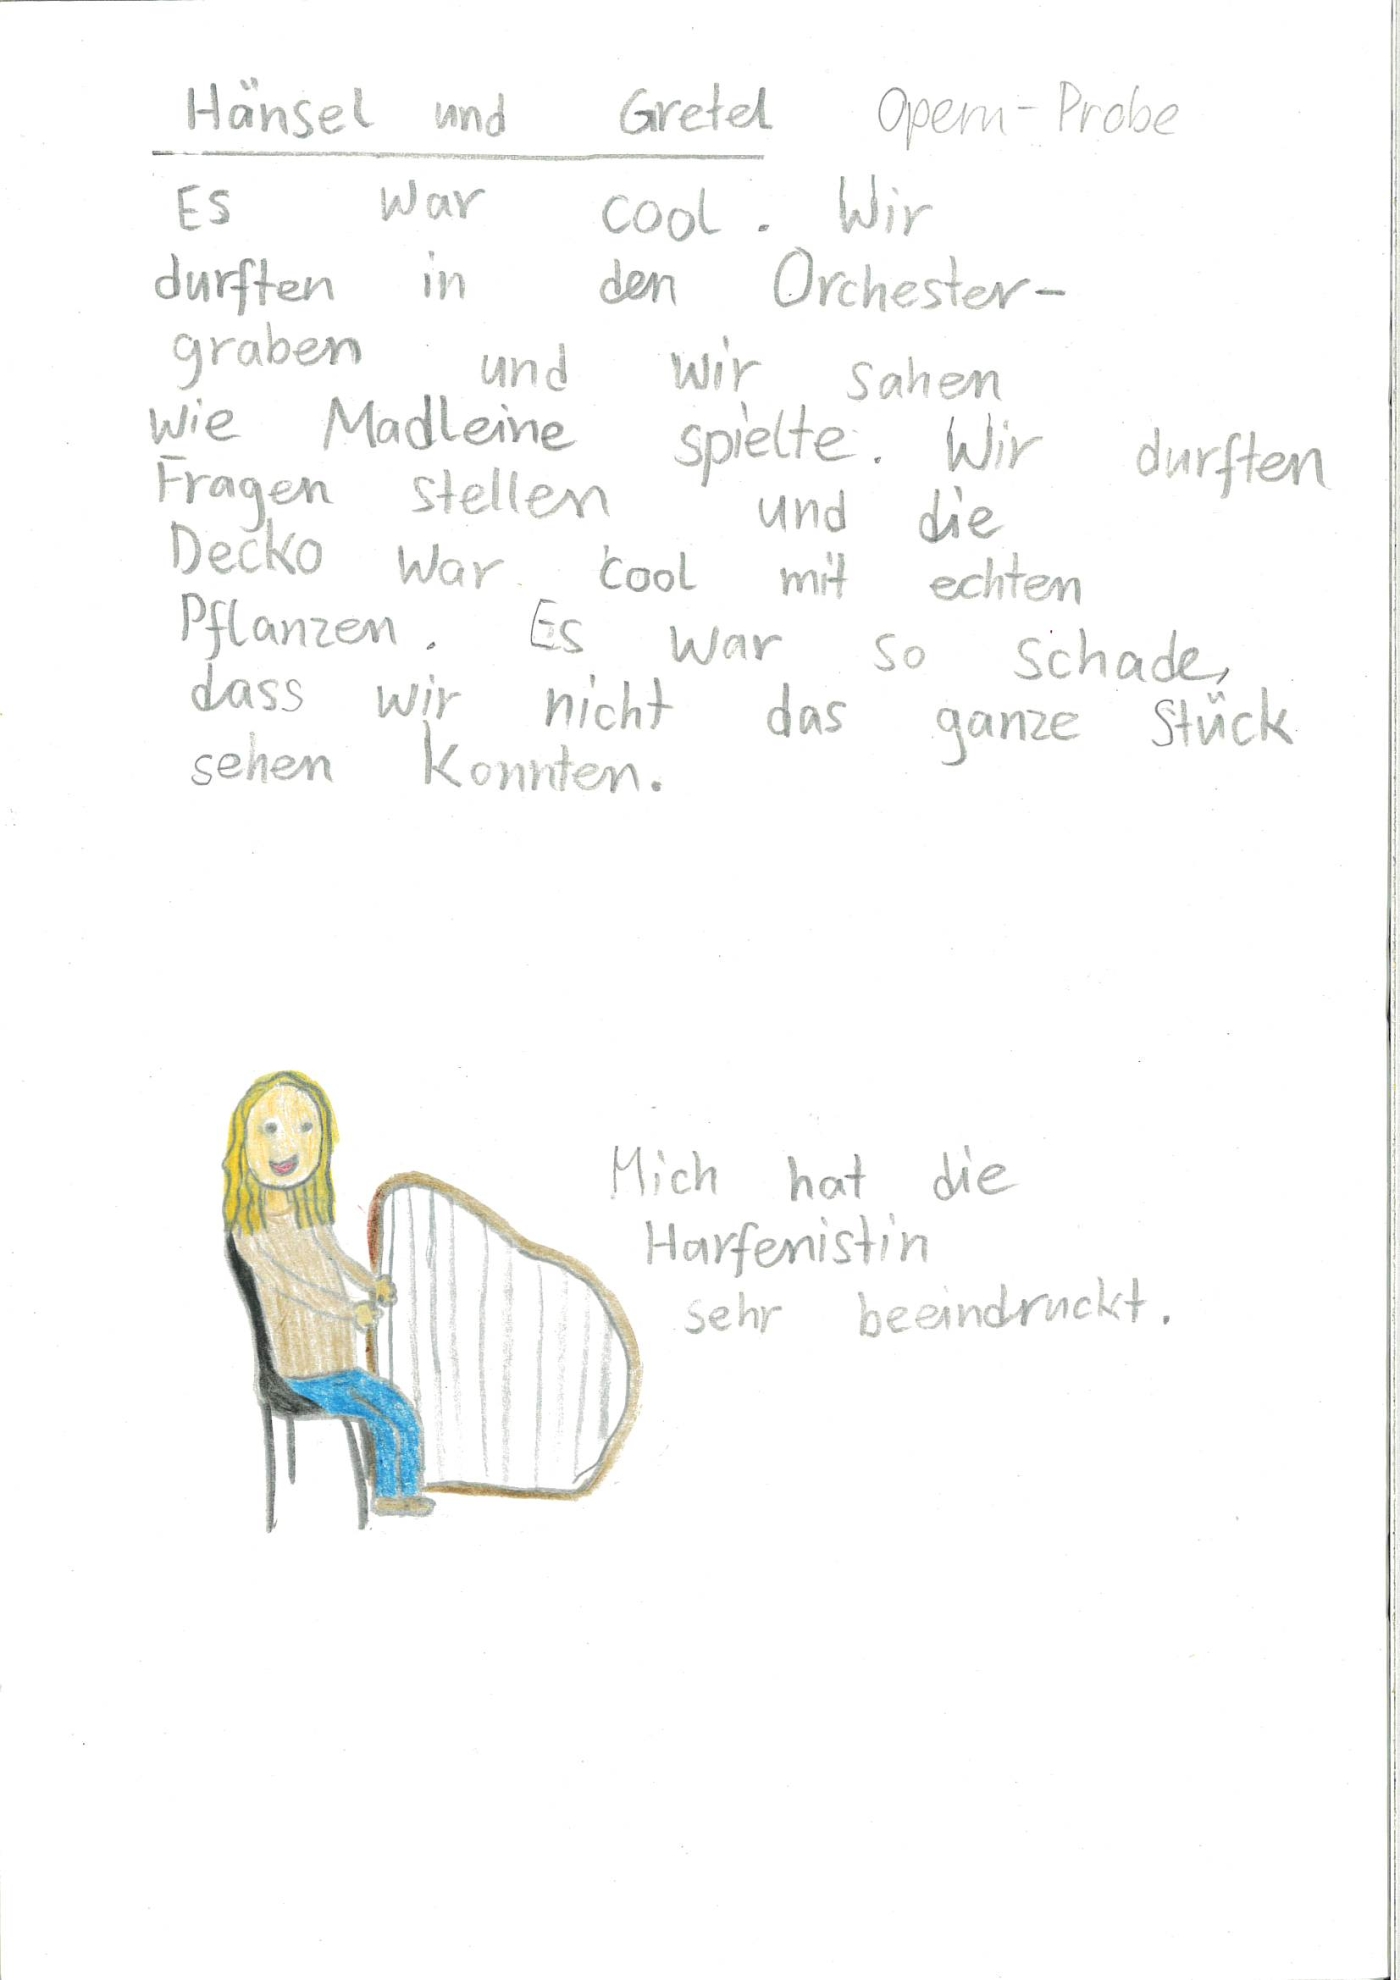 Hänsel und Gretel Opern-Probe
Es war cool. Wir
durften in den Orchester-
graben und wir sahen
wie Madleine spielte. Wir durften
Fragen stellen und die
Decko war cool mit echten
Pflanzen. Es war so schade,
dass wir nicht das ganze Stück
sehen konnten.
Mich hat die
Harfenistin
sehr beeindruckt.